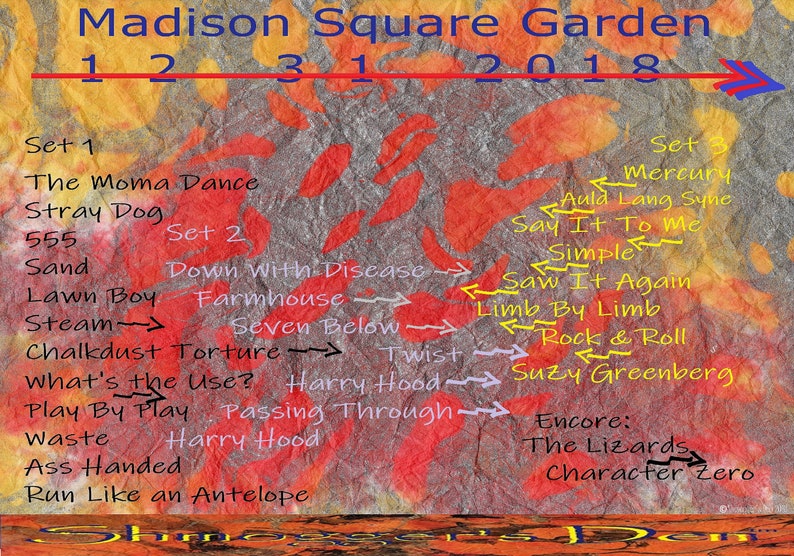 Madison Square Garden
12 31 2018
Set 1
The Moma Dance
Stray Dog
555
Sand
Lawn Boy
Steam
Chalkdust Torture
What's the Use?
Play By Play
Waste
Ass Handed
Run Like an Antelope
Set 2
Down With Disease
Farmhouse
Seven Below
Twist
Harry Hood
Passing Through
Harry Hood
Set 3
Mercury
Auld Lang Syne
Say It To Me
Simple
Saw It Again
Limb By Limb
Rock & Roll
Suzy Greenberg
Encore:
The Lizards
Character Zero
Shmogger's Den